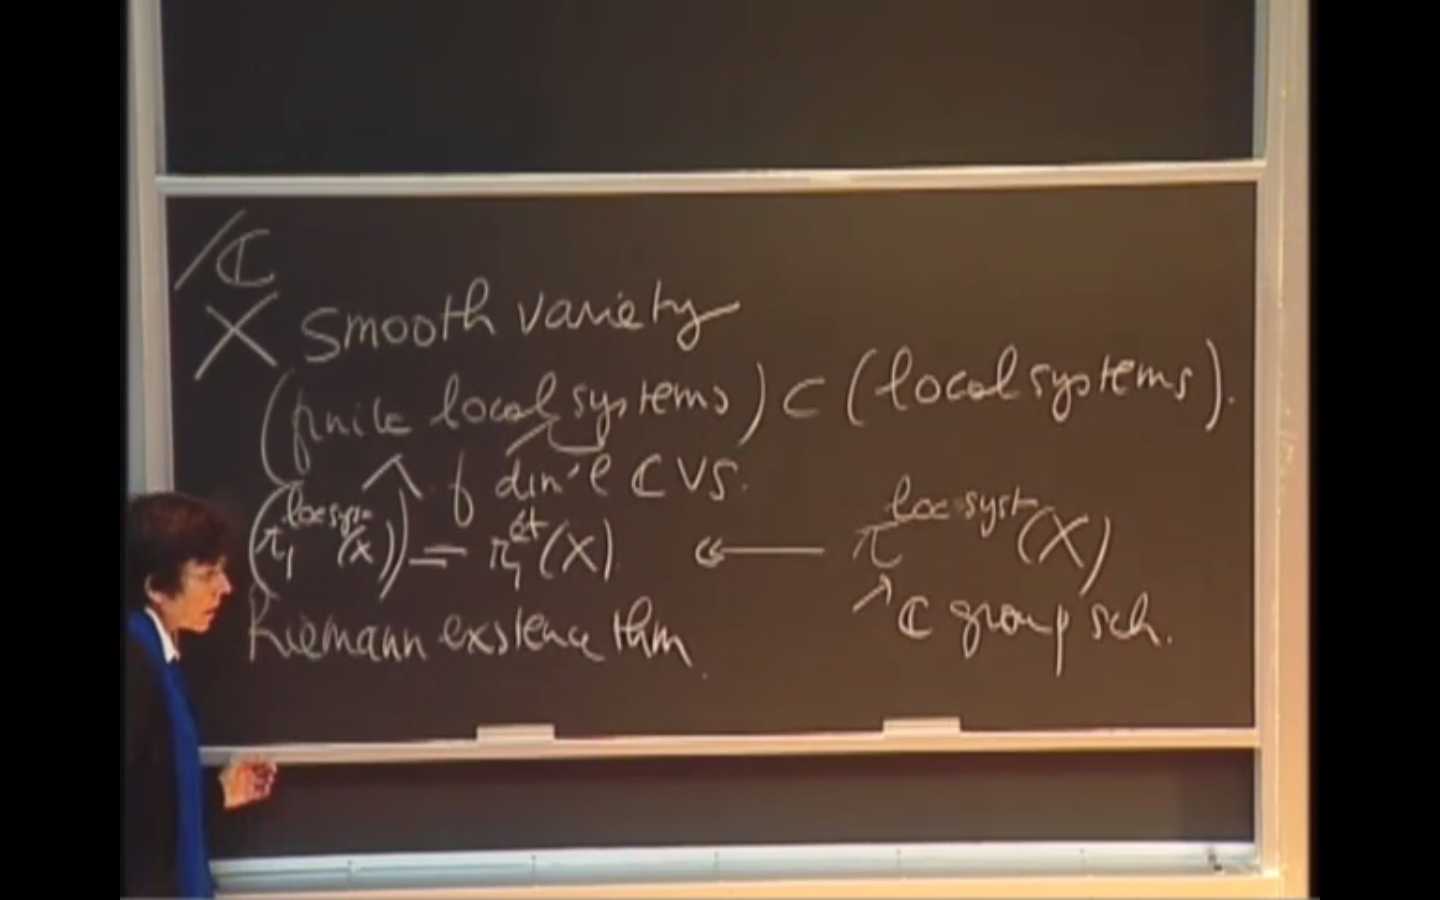 /ℂ
X smooth variety
(finite local systems) ⊂ (local systems).
f dim'l ℂ VS.
(π₁^loc syst (X))^ = π₁^ét (X) ↞ π^loc syst (X)
ℂ group sch.
Riemann existence thm.